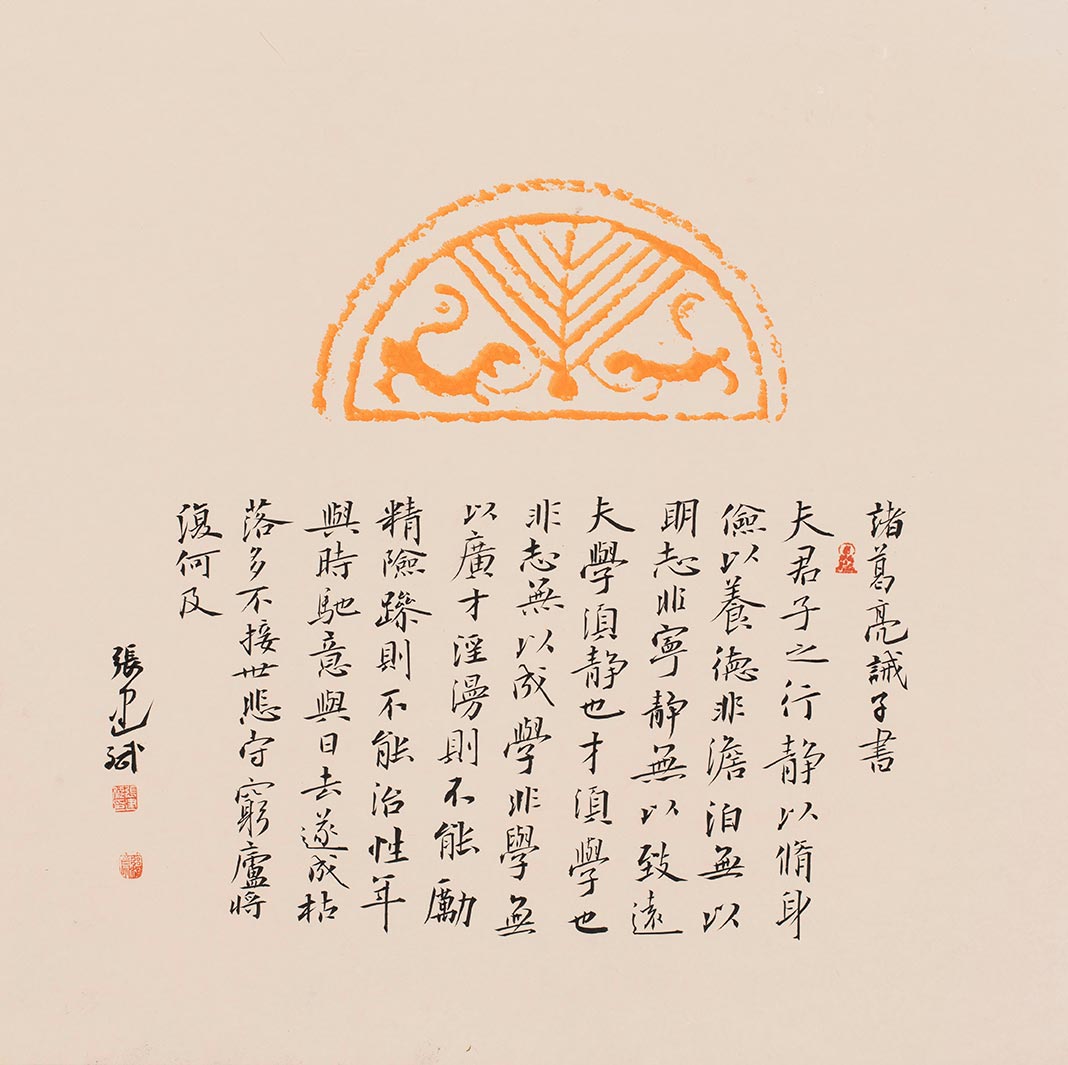 諸葛亮誡子書
夫君子之行静以脩身
儉以養德非澹泊無以
明志非寧静無以致遠
夫學須静也才須學也
非志無以成學非學無
以廣才淫漫則不能勵
精險躁則不能治性年
與時馳意與日去遂成枯
落多不接世悲守窮廬將
復何及
張建斌